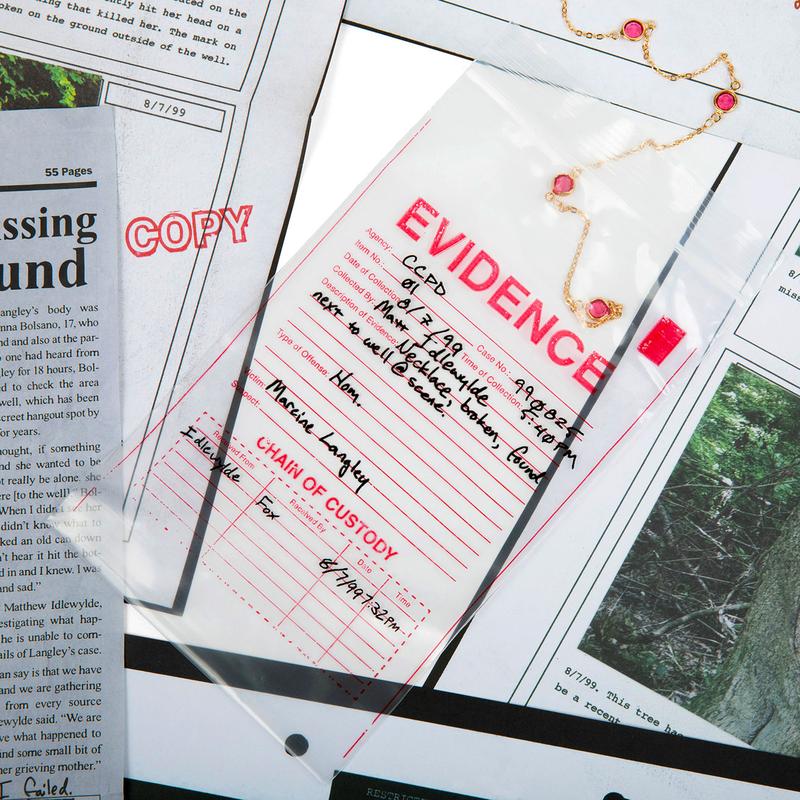 ated on the
ently hit her head on a
ing that killed her. The mark on
oken on the ground outside of the well.
8/7/99
COPY
55 Pages
ssing
und
angley's body was
nna Bolsano, 17, who
nd and also at the par-
o one had heard from
ley for 18 hours, Bol-
d to check the area
well, which has been
creet hangout spot by
for years.
hought, if something
nd she wanted to be
t really be alone. she
ere [to the well]." Bol-
When I didn't see her
didn't know what to
ked an old can down
n't hear it hit the bot-
d in and I knew. I was
and sad."
Matthew Idlewylde,
estigating what hap-
he is unable to com-
ails of Langley's case.
an say is that we have
and we are gathering
from every source
ewylde said. "We are
ve what happened to
ind some small bit of
her grieving mother."
I failed.
EVIDENCE
Agency: CCPD
Item No.: 01 Case No.: 990825
Date of Collection: 8/7/99 Time of Collection: 5:40PM
Collected By: Matt Idlewylde
Description of Evidence: Necklace, broken, found
next to well @ scene.
Type of Offense: Hom.
Victim: Marcine Langley
Suspect:
CHAIN OF CUSTODY
Received From Received By Date Time
Idlewylde Fox 8/7/99 7:32PM
miss
8/7/99. This tree has
be a recent
RESTRICT